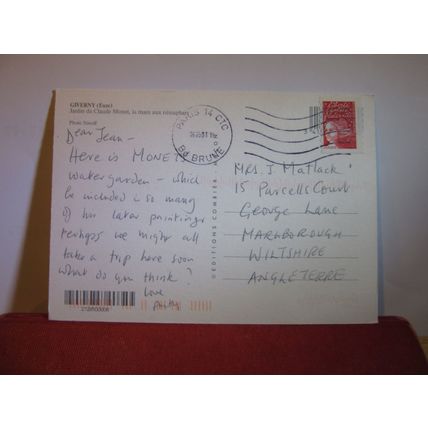 GIVERNY (Eure)
Jardin de Claude Monet, la mare aux nénuphars
Photo
Dear Jean -
Here is MONET'S
water garden - which
he included in so many
of his later paintings
Perhaps we might all
take a trip here soon
what do you think?
love
PARIS 14 CTC
Bd BRUNE
©EDITIONS COMBIER
Mrs. J. Matlack
15 Parcells Court
George Lane
MARLBOROUGH
WILTSHIRE
ANGLETERRE